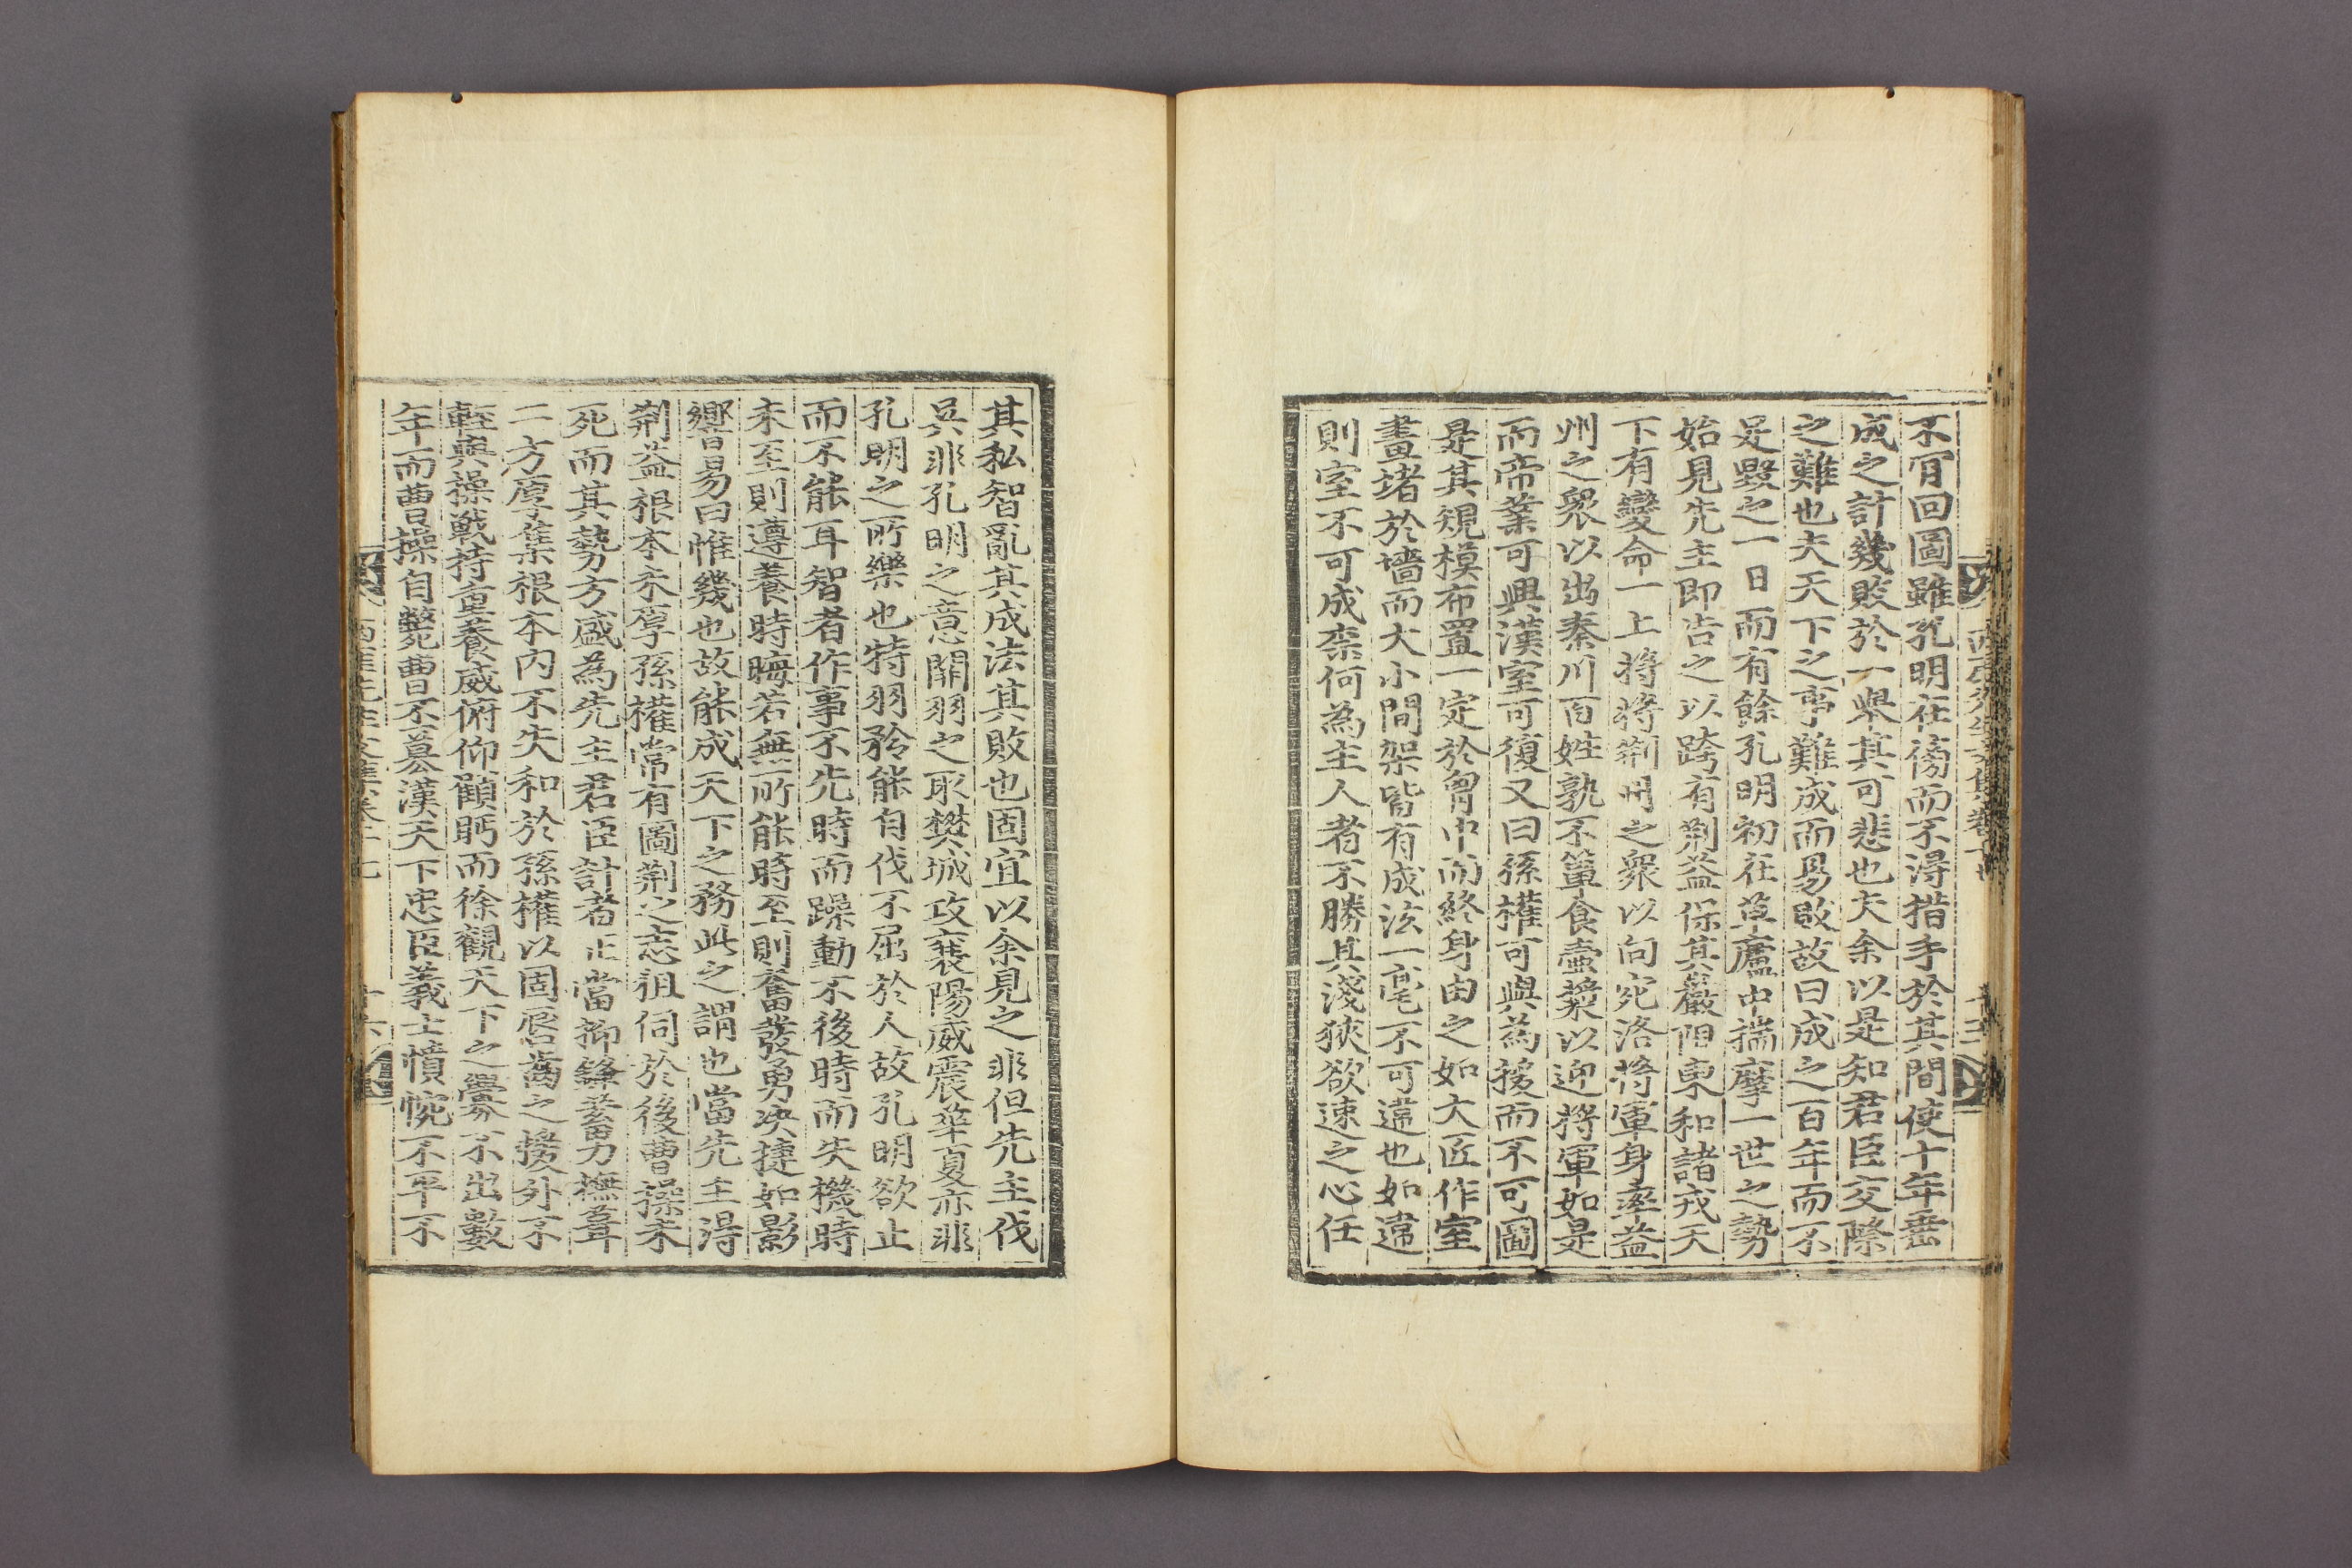 不肎回圖雖孔明在傍而不得措手於其間使十年垂
成之計幾敗於一擧其可悲也夫余以是知君臣交際
之難也夫天下之事難成而易敗故曰成之百年而不
足毀之一日而有餘孔明初在草廬中揣摩一世之勢
始見先主卽告之以跨有荊益保其巖阻東和諸戎天
下有變命一上將將荊州之衆以向宛洛將軍身率益
州之衆以出秦川百姓孰不簞食壷漿以迎將軍如是
而帝業可興漢室可復又曰孫權可與爲援而不可圖
是其規模布置一定於胷中而終身由之如大匠作室
畫堵於墻而大小間架皆有成法一毫不可違也如違
則室不可成柰何爲主人者不勝其淺狹欲速之心任
其私智亂其成法其敗也固宜以余見之非但先主伐
吳非孔明之意關羽之取樊城攻襄陽威震華夏亦非
孔明之所樂也特羽矜能自伐不屈於人故孔明欲止
而不能耳智者作事不先時而躁動不後時而失機時
未至則遵養時晦若無所能時至則奮發勇决捷如影
響易曰惟幾也故能成天下之務此之謂也當先主得
荊益根本未厚孫權常有圖荊之志狙伺於後曹操未
死而其勢方盛爲先主君臣計者正當抑鋒蓄力撫葺
二方厚集根本內不失和於孫權以固脣齒之援外不
輕與操戰持重養威俯仰顧眄而徐觀天下之釁不出數
年而曹操自斃曹丕簒漢天下忠臣義士憤惋不平不
西厓先生文集卷十七
十六